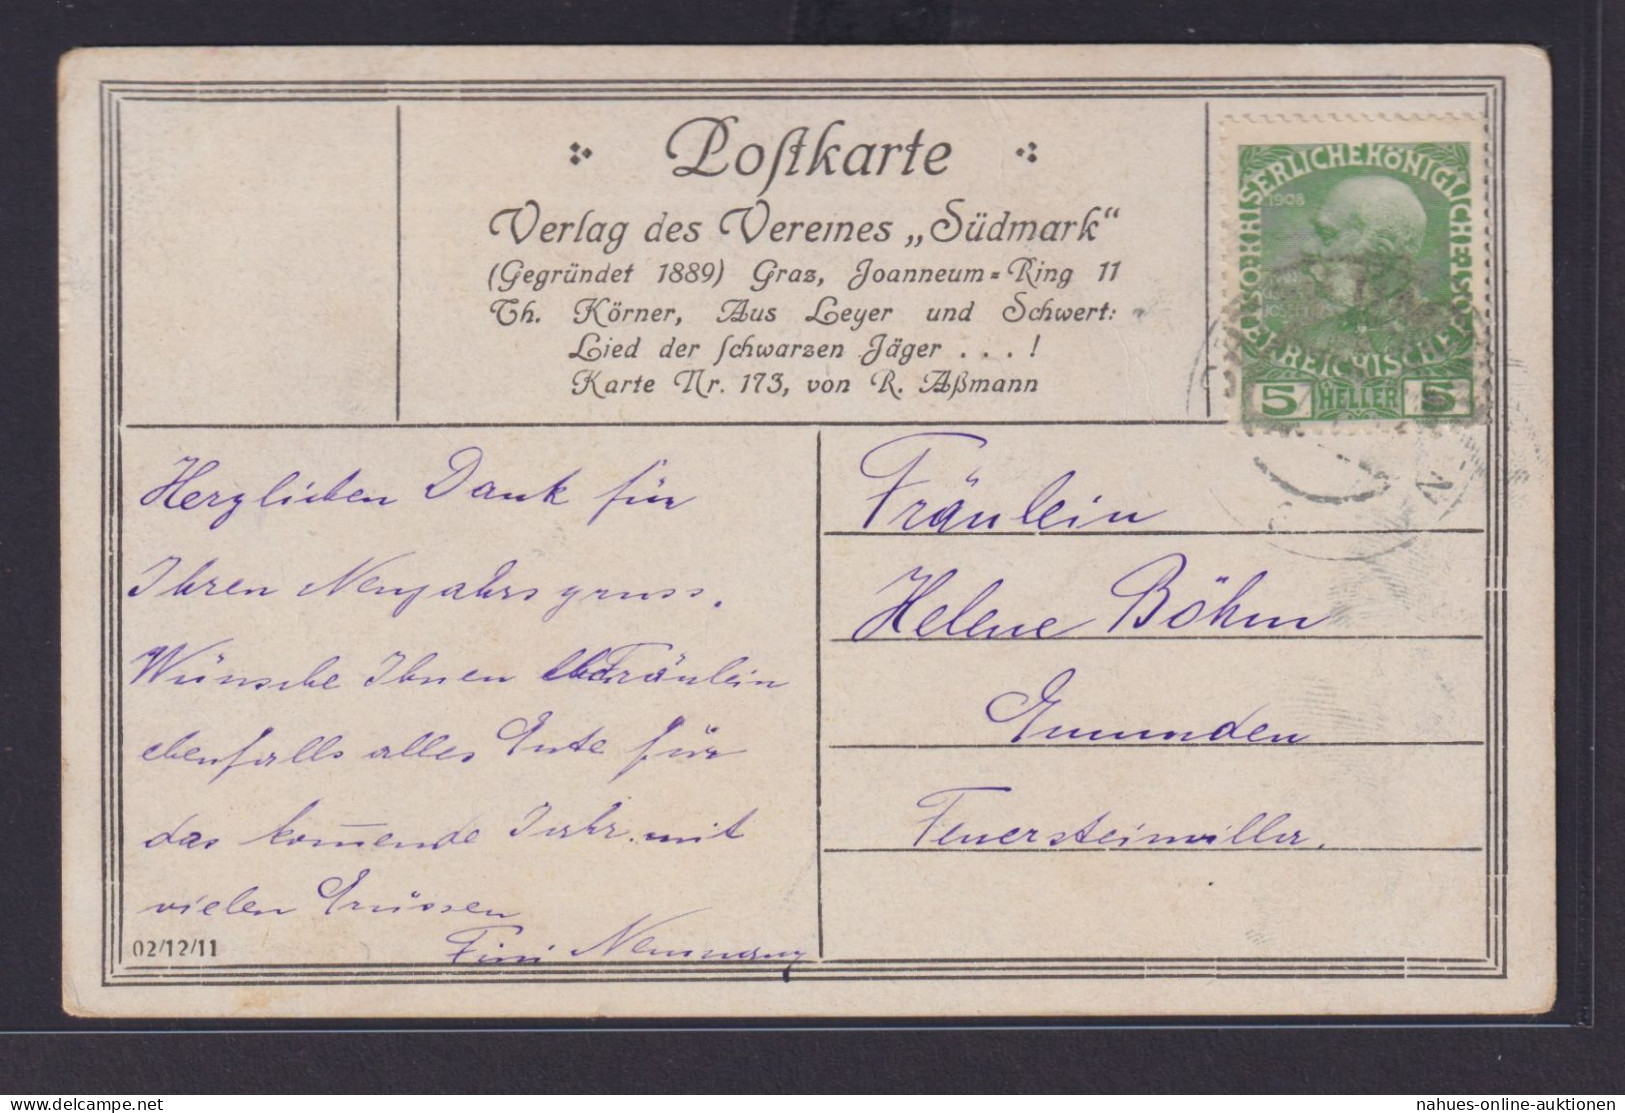 Postkarte
Verlag des Vereines „Südmark“
(Gegründet 1889) Graz, Joanneum=Ring 11
Th. Körner, Aus Leyer und Schwert:
Lied der schwarzen Jäger . . . !
Karte Nr. 173, von R. Aßmann
KAISERLICHE KÖNIGLICHE
1908
ÖSTERREICHISCHE
5 HELLER 5
Herzlichen Dank für
Ihren Neujahrsgruss.
Wünsche Ihnen Fräulein
ebenfalls alles Gute für
das kom̄ende Jahr. mit
vielen Grüssen
Fini Neumann
02/12/11
Fräulein
Helene Böhm
Gmunden
Feuersteinviller.
nahues-online-auktionen